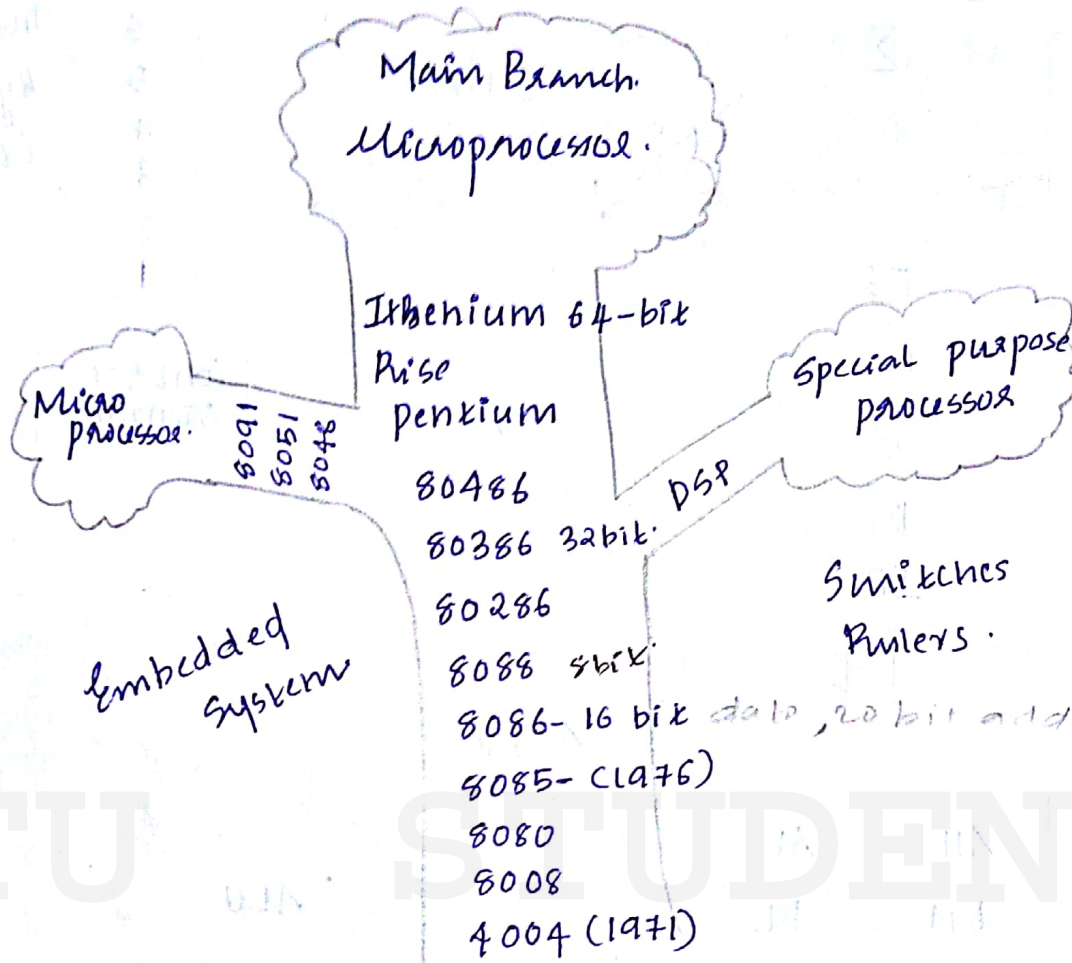 Main Branch.
Microprocessor.
Ithenium 64-bit
Rise
Pentium
80486
80386 32bit.
80286
8088 8bit.
8086- 16 bit data, 20 bit add
8085- (1976)
8080
8008
4004 (1971)
Micro
processor.
8091
8051
8048
Embedded
System
Special purpose
processor
DSP
Switches
Rulers.
TU STUDEN
ALU